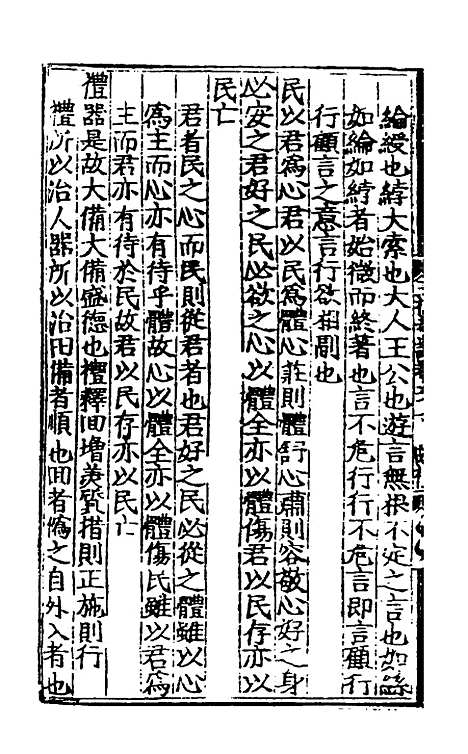 綸綬也綍大索也大人王公也遊言無根不定之言也如絲
如綸如綍者始微而終著也言不危行行不危言即言顧行
行顧言之意言行欲相副也
民以君爲心君以民爲體心莊則體舒心肅則容敬心好之身
必安之君好之民必欲之心以體全亦以體傷君以民存亦以
民亡
君者民之心而民則從君者也君好之民必從之體雖以心
爲主而心亦有待乎體故心以體全亦以體傷民雖以君爲
主而君亦有待於民故君以民存亦以民亡
禮器是故大備大備盛德也禮釋回增美質措則正施則行
禮所以治人器所以治曰備者順也回者僞之自外入者也